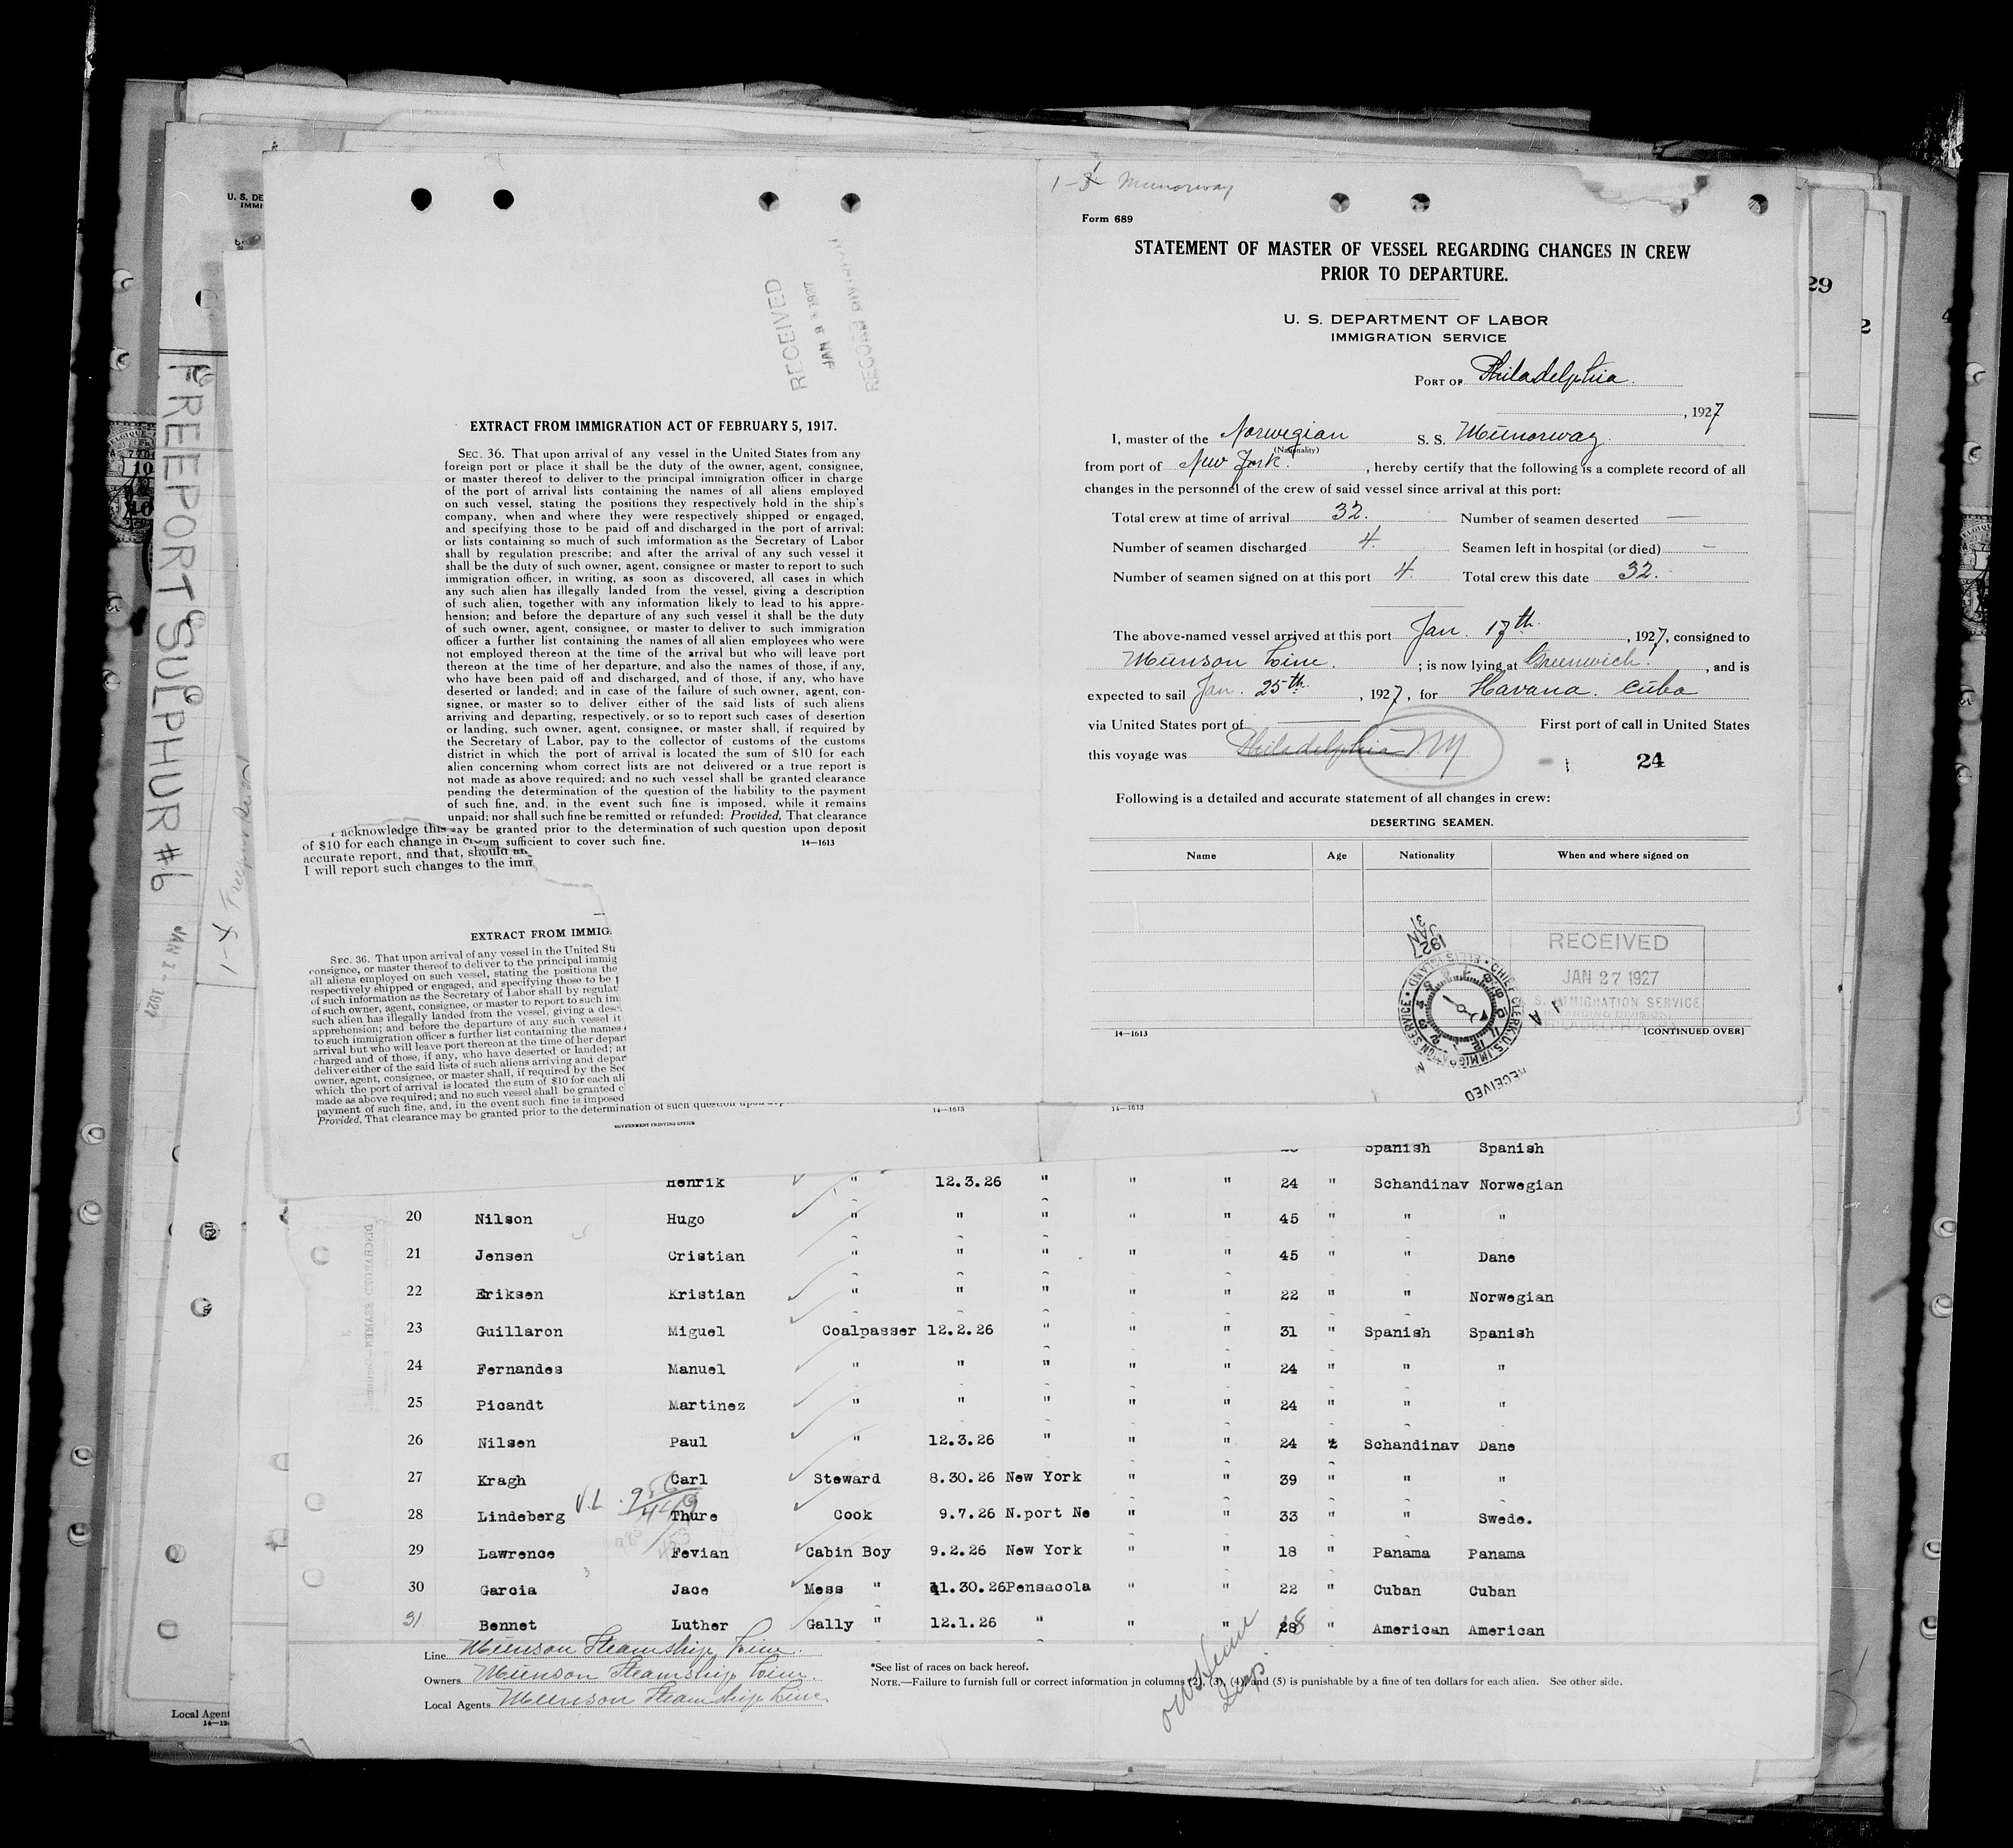 1-3 Munorway
Form 689
STATEMENT OF MASTER OF VESSEL REGARDING CHANGES IN CREW
PRIOR TO DEPARTURE.
U. S. DEPARTMENT OF LABOR
IMMIGRATION SERVICE
PORT OF Philadelphia.
, 1927
I, master of the Norwegian S. S. Munorway.
(Nationality)
from port of New York. , hereby certify that the following is a complete record of all
changes in the personnel of the crew of said vessel since arrival at this port:
Total crew at time of arrival 32. Number of seamen deserted —
Number of seamen discharged 4. Seamen left in hospital (or died) —
Number of seamen signed on at this port 4. Total crew this date 32.
The above-named vessel arrived at this port Jan. 17th. , 1927, consigned to
Munson Line. ; is now lying at Greenwich. , and is
expected to sail Jan. 25th. , 1927, for Havana. Cuba
via United States port of — First port of call in United States
this voyage was Philadelphia NY
24
Following is a detailed and accurate statement of all changes in crew:
DESERTING SEAMEN.
Name Age Nationality When and where signed on
1927
JAN
31
CHIEF CLERK, U.S. IMMIGRATION SERVICE • ELLIS ISLAND •
RECEIVED
RECEIVED
JAN 27 1927
S. IMMIGRATION SERVICE
14—1613 [CONTINUED OVER]
RECEIVED
JAN 1927
RECORD DIVISION
EXTRACT FROM IMMIGRATION ACT OF FEBRUARY 5, 1917.
SEC. 36. That upon arrival of any vessel in the United States from any
foreign port or place it shall be the duty of the owner, agent, consignee,
or master thereof to deliver to the principal immigration officer in charge
of the port of arrival lists containing the names of all aliens employed
on such vessel, stating the positions they respectively hold in the ship's
company, when and where they were respectively shipped or engaged,
and specifying those to be paid off and discharged in the port of arrival;
or lists containing so much of such imformation as the Secretary of Labor
shall by regulation prescribe; and after the arrival of any such vessel it
shall be the duty of such owner, agent, consignee or master to report to such
immigration officer, in writing, as soon as discovered, all cases in which
any such alien has illegally landed from the vessel, giving a description
of such alien, together with any information likely to lead to his appre-
hension; and before the departure of any such vessel it shall be the duty
of such owner, agent, consignee, or master to deliver to such immigration
officer a further list containing the names of all alien employees who were
not employed thereon at the time of the arrival but who will leave port
thereon at the time of her departure, and also the names of those, if any,
who have been paid off and discharged, and of those, if any, who have
deserted or landed; and in case of the failure of such owner, agent, con-
signee, or master so to deliver either of the said lists of such aliens
arriving and departing, respectively, or so to report such cases of desertion
or landing, such owner, agent, consignee, or master shall, if required by
the Secretary of Labor, pay to the collector of customs of the customs
district in which the port of arrival is located the sum of $10 for each
alien concerning whom correct lists are not delivered or a true report is
not made as above required; and no such vessel shall be granted clearance
pending the determination of the question of the liability to the payment
of such fine, and, in the event such fine is imposed, while it remains
unpaid; nor shall such fine be remitted or refunded: Provided, That clearance
may be granted prior to the determination of such question upon deposit
sufficient to cover such fine. 14—1613
acknowledge this
of $10 for each change in
accurate report, and that, should
I will report such changes to the imm
EXTRACT FROM IMMIG
SEC. 36. That upon arrival of any vessel in the United St
consignee, or master thereof to deliver to the principal immig
all aliens employed on such vessel, stating the positions the
respectively shipped or engaged, and specifying those to be
of such information as the Secretary of Labor shall by regulat
of such owner, agent, consignee, or master to report to such im
such alien has illegally landed from the vessel, giving a desc
apprehension; and before the departure of any such vessel it
to such immigration officer a further list containing the names
arrival but who will leave port thereon at the time of her depart
charged and of those, if any, who have deserted or landed; an
deliver either of the said lists of such aliens arriving and depar
owner, agent, consignee, or master shall, if required by the Sec
which the port of arrival is located the sum of $10 for each ali
made as above required; and no such vessel shall be granted c
payment of such fine, and, in the event such fine is imposed
Provided, That clearance may be granted prior to the determination of such question upon dep
GOVERNMENT PRINTING OFFICE
14—1613 14—1613
Spanish Spanish
Henrik " 12.3.26 " " " 24 " Schandinav Norwegian
20 Nilson Hugo " " " " " 45 " " "
21 Jensen Cristian " " " " " 45 " " Dane
22 Eriksen Kristian " " " " " 22 " " Norwegian
23 Guillaron Miguel Coalpasser 12.2.26 " " " 31 " Spanish Spanish
24 Fernandes Manuel " " " " " 24 " " "
25 Picandt Martinez " " " " " 24 " " "
26 Nilsen Paul " 12.3.26 " " " 24 " Schandinav Dane
27 Kragh Carl Steward 8.30.26 New York " " 39 " " "
28 Lindeberg Thure Cook 9.7.26 N.port Ne " " 33 " " Swede.
29 Lawrence Fevian Cabin Boy 9.2.26 New York " " 18 " Panama Panama
30 Garcia Jace Mess " 11.30.26 Pensacola " " 22 " Cuban Cuban
31 Bennet Luther Gally " 12.1.26 " " " 28 18 " American American
Line Munson Steamship Line.
Owners Munson Steamship Line.
Local Agents Munson Steamship Line.
*See list of races on back hereof.
NOTE.—Failure to furnish full or correct information in columns (2), (3), (4), and (5) is punishable by a fine of ten dollars for each alien. See other side.
FREEPORT SULPHUR #6
JAN 2 - 1927
U. S. DE
IMMI
Local Agent
29
2